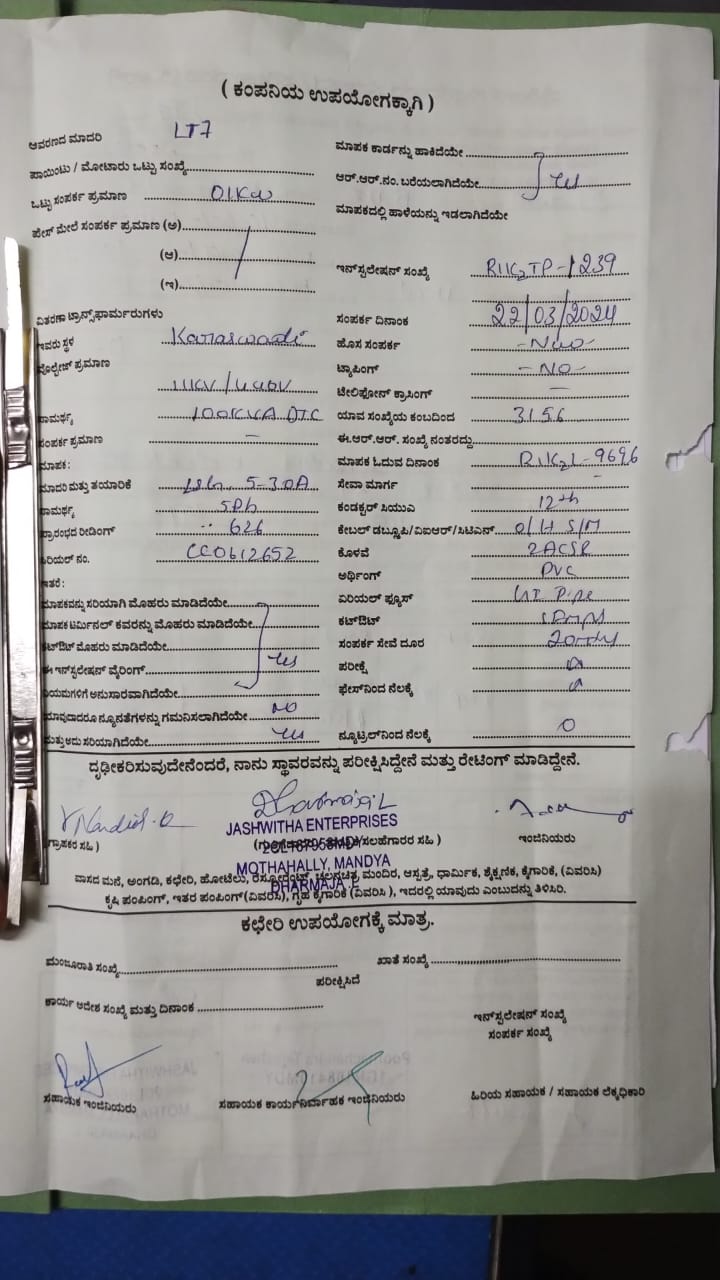 ( ಕಂಪನಿಯ ಉಪಯೋಗಕ್ಕಾಗಿ )
ಆವರಣದ ಮಾದರಿ LT7
ಪಾಯಿಂಟು / ಮೋಟಾರು ಒಟ್ಟು ಸಂಖ್ಯೆ
ಒಟ್ಟು ಸಂಪರ್ಕ ಪ್ರಮಾಣ 01KW
ಫೇಸ್ ಮೇಲೆ ಸಂಪರ್ಕ ಪ್ರಮಾಣ (ಅ)
(ಆ)
(ಇ)
ವಿತರಣಾ ಟ್ರಾನ್ಸ್‌ಫಾರ್ಮರುಗಳು
ಇವರು ಸ್ಥಳ Karaswadi
ವೋಲ್ಟೇಜ್ ಪ್ರಮಾಣ
11KV / 440V
ಸಾಮರ್ಥ್ಯ 100KVA DTC
ಸಂಪರ್ಕ ಪ್ರಮಾಣ -
ಮಾಪಕ:
ಮಾದರಿ ಮತ್ತು ತಯಾರಿಕೆ 5-30A
ಸಾಮರ್ಥ್ಯ
ಪ್ರಾರಂಭದ ರೀಡಿಂಗ್ 626
ಸಿರಿಯಲ್ ನಂ. CC0612652
ಇತರೆ :
ಮಾಪಕವನ್ನು ಸರಿಯಾಗಿ ಮೊಹರು ಮಾಡಿದೆಯೇ
ಮಾಪಕ ಟರ್ಮಿನಲ್ ಕವರನ್ನು ಮೊಹರು ಮಾಡಿದೆಯೇ
ಕಟ್‌ಔಟ್ ಮೊಹರು ಮಾಡಿದೆಯೇ
ಈ ಇನ್‌ಸ್ಟಲೇಷನ್ ವೈರಿಂಗ್ yes
ನಿಯಮಗಳಿಗೆ ಅನುಸಾರವಾಗಿದೆಯೇ
ಯಾವುದಾದರೂ ನ್ಯೂನತೆಗಳನ್ನು ಗಮನಿಸಲಾಗಿದೆಯೇ NO
ಮತ್ತು ಅದು ಸರಿಯಾಗಿದೆಯೇ yes
ಮಾಪಕ ಕಾರ್ಡನ್ನು ಹಾಕಿದೆಯೇ
ಆರ್.ಆರ್.ನಂ. ಬರೆಯಲಾಗಿದೆಯೇ yes
ಮಾಪಕದಲ್ಲಿ ಹಾಳೆಯನ್ನು ಇಡಲಾಗಿದೆಯೇ
ಇನ್‌ಸ್ಟಲೇಷನ್ ಸಂಖ್ಯೆ R1K2TP-1239
ಸಂಪರ್ಕ ದಿನಾಂಕ 22/03/2024
ಹೊಸ ಸಂಪರ್ಕ
ಟ್ಯಾಪಿಂಗ್ -NO-
ಟೆಲಿಫೋನ್ ಕ್ರಾಸಿಂಗ್ -
ಯಾವ ಸಂಖ್ಯೆಯ ಕಂಬದಿಂದ 3156
ಈ.ಆರ್.ಆರ್. ಸಂಖ್ಯೆ ನಂತರದ್ದು
ಮಾಪಕ ಓದುವ ದಿನಾಂಕ R1K2L-9696
ಸೇವಾ ಮಾರ್ಗ -
ಕಂಡಕ್ಟರ್ ಸಿಯುಎ 12th
ಕೇಬಲ್ ಡಬ್ಲೂಪಿ/ವಿಐಆರ್/ಸಿಟಿಎನ್ O/H S/M
ಕೊಳವೆ 2ACSR
ಅರ್ಥಿಂಗ್ PVC
ಏರಿಯಲ್ ಫ್ಯೂಸ್ GI Pipe
ಕಟ್‌ಔಟ್
ಸಂಪರ್ಕ ಸೇವೆ ದೂರ 20mtrs
ಪರೀಕ್ಷೆ
ಫೇಸ್‌ನಿಂದ ನೆಲಕ್ಕೆ
ನ್ಯೂಟ್ರಲ್‌ನಿಂದ ನೆಲಕ್ಕೆ 0
ದೃಢೀಕರಿಸುವುದೇನೆಂದರೆ, ನಾನು ಸ್ಥಾವರವನ್ನು ಪರೀಕ್ಷಿಸಿದ್ದೇನೆ ಮತ್ತು ರೇಟಿಂಗ್ ಮಾಡಿದ್ದೇನೆ.
Dharmaja.L
JASHWITHA ENTERPRISES
ಗ್ರಾಹಕರ ಸಹಿ ) ಸಲಹೆಗಾರರ ಸಹಿ ) ಇಂಜಿನಿಯರು
MOTHAHALLY, MANDYA
DHARMAJA .L
ವಾಸದ ಮನೆ, ಅಂಗಡಿ, ಕಛೇರಿ, ಹೋಟೆಲು, ರೆಸ್ಟೋರೆಂಟ್, ಚಲನಚಿತ್ರ ಮಂದಿರ, ಆಸ್ಪತ್ರೆ, ಧಾರ್ಮಿಕ, ಶೈಕ್ಷಣಿಕ, ಕೈಗಾರಿಕೆ, (ವಿವರಿಸಿ)
ಕೃಷಿ ಪಂಪಿಂಗ್, ಇತರ ಪಂಪಿಂಗ್ (ವಿವರಿಸಿ), ಗೃಹ ಕೈಗಾರಿಕೆ (ವಿವರಿಸಿ ), ಇದರಲ್ಲಿ ಯಾವುದು ಎಂಬುದನ್ನು ತಿಳಿಸಿರಿ.
ಕಛೇರಿ ಉಪಯೋಗಕ್ಕೆ ಮಾತ್ರ.
ಮಂಜೂರಾತಿ ಸಂಖ್ಯೆ ಖಾತೆ ಸಂಖ್ಯೆ
ಪರೀಕ್ಷಿಸಿದೆ
ಕಾರ್ಯ ಆದೇಶ ಸಂಖ್ಯೆ ಮತ್ತು ದಿನಾಂಕ
ಇನ್‌ಸ್ಟಲೇಷನ್ ಸಂಖ್ಯೆ
ಸಂಪರ್ಕ ಸಂಖ್ಯೆ
ಸಹಾಯಕ ಇಂಜಿನಿಯರು ಸಹಾಯಕ ಕಾರ್ಯನಿರ್ವಾಹಕ ಇಂಜಿನಿಯರು ಹಿರಿಯ ಸಹಾಯಕ / ಸಹಾಯಕ ಲೆಕ್ಕಧಿಕಾರಿ